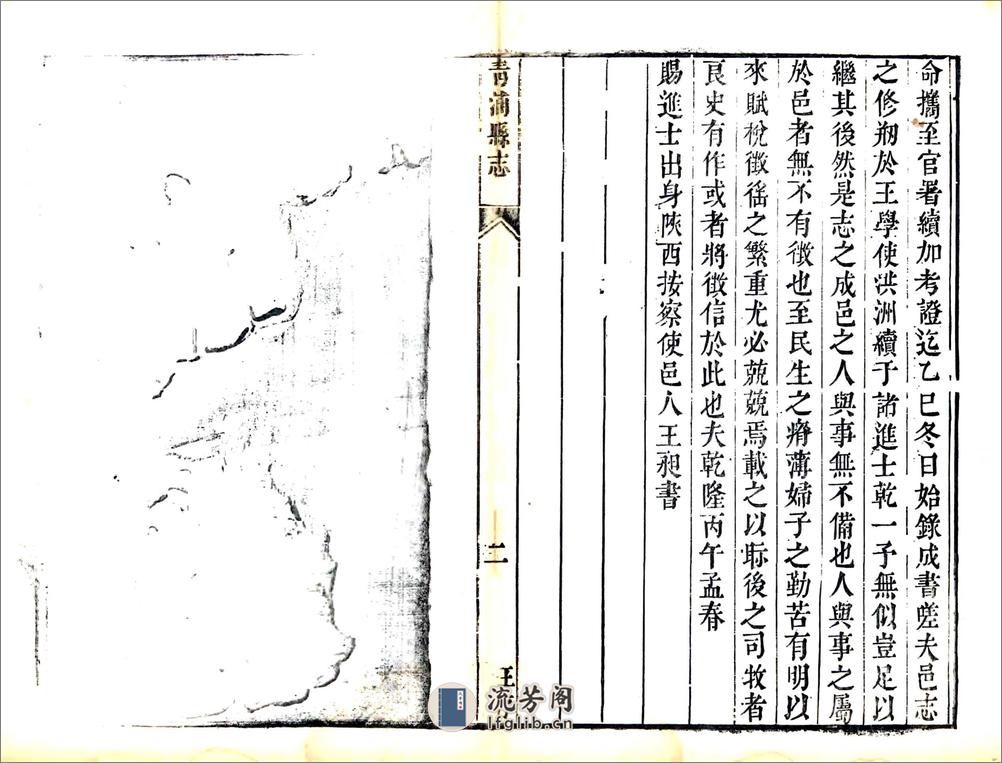 命攜至官署續加考證迄乙巳冬日始錄成書嗟夫邑志
之修刱於王學使洪洲續于諸進士乾一予無似豈足以
繼其後然是志之成邑之人與事無不備也人與事之屬
於邑者無不有徵也至民生之瘠薄婦子之勤苦有明以
來賦稅徵徭之繁重尤必兢兢焉載之以眎後之司牧者
良史有作或者將徵信於此也夫乾隆丙午孟春
賜進士出身陝西按察使邑人王昶書
青浦縣志
二
王
流芳阁
lfglib.cn